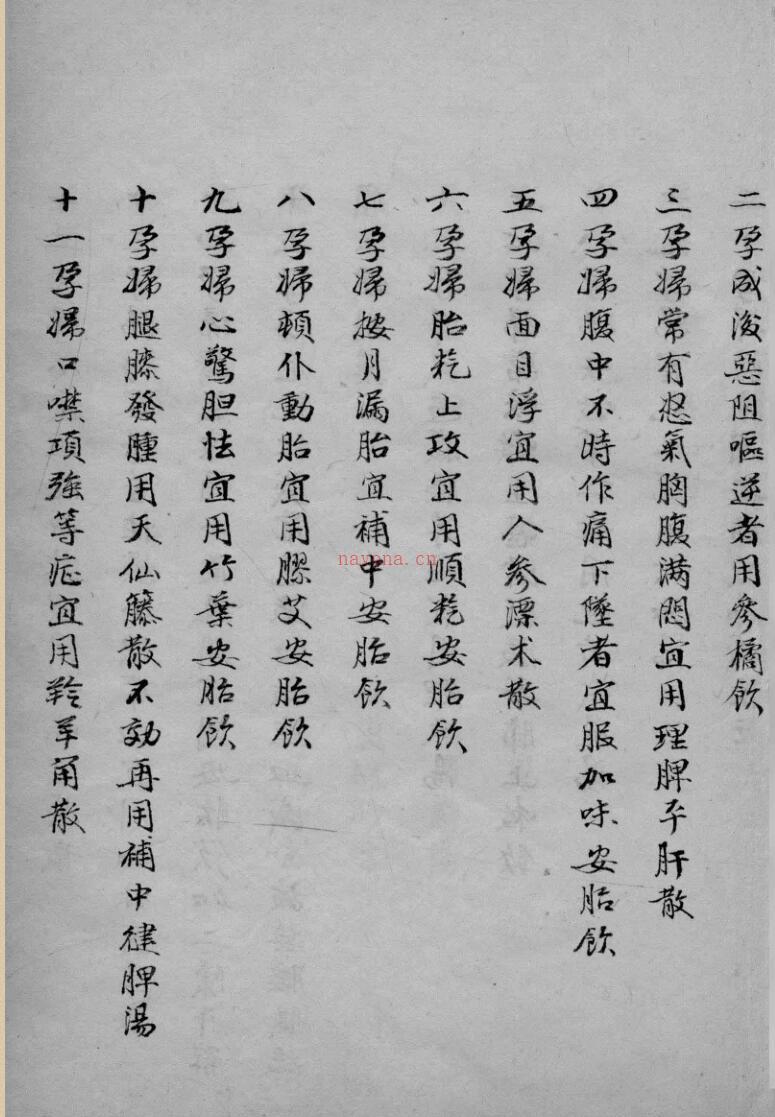 二孕成後惡阻嘔逆者用參橘飲
三孕婦常有怒氣胸腹满悶宜用理脾平肝散
四孕婦腹中不時作痛下墜者宜服加味安胎飲
五孕婦面目浮宜用人參漂术散
六孕婦胎氣上攻宜用順氣安胎飲
七孕婦按月漏胎宜補中安胎飲
八孕婦頓仆動胎宜用膠艾安胎飲
九孕婦心驚胆怯宜用竹葉安胎飲
十孕婦腿膝發腫用天仙籐散不効再用補中健脾湯
十一孕婦口噤項強等症宜用羚羊角散
nayona.cn